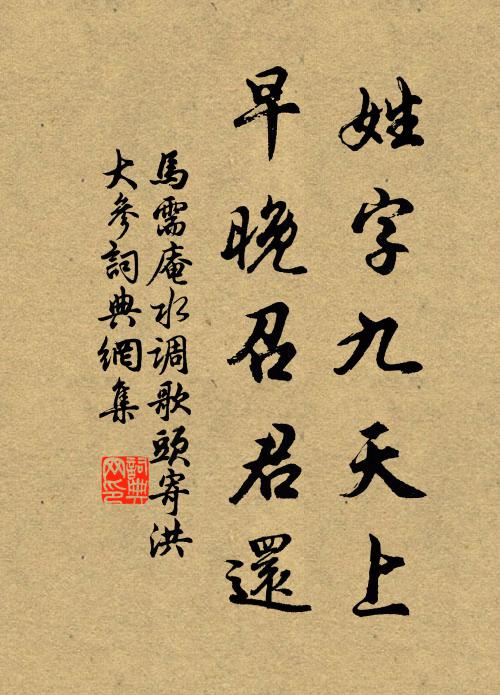 姓字九天上
早晚召君還
馬需庵水調歌頭寄洪
大參詞典網集
詞典
网印